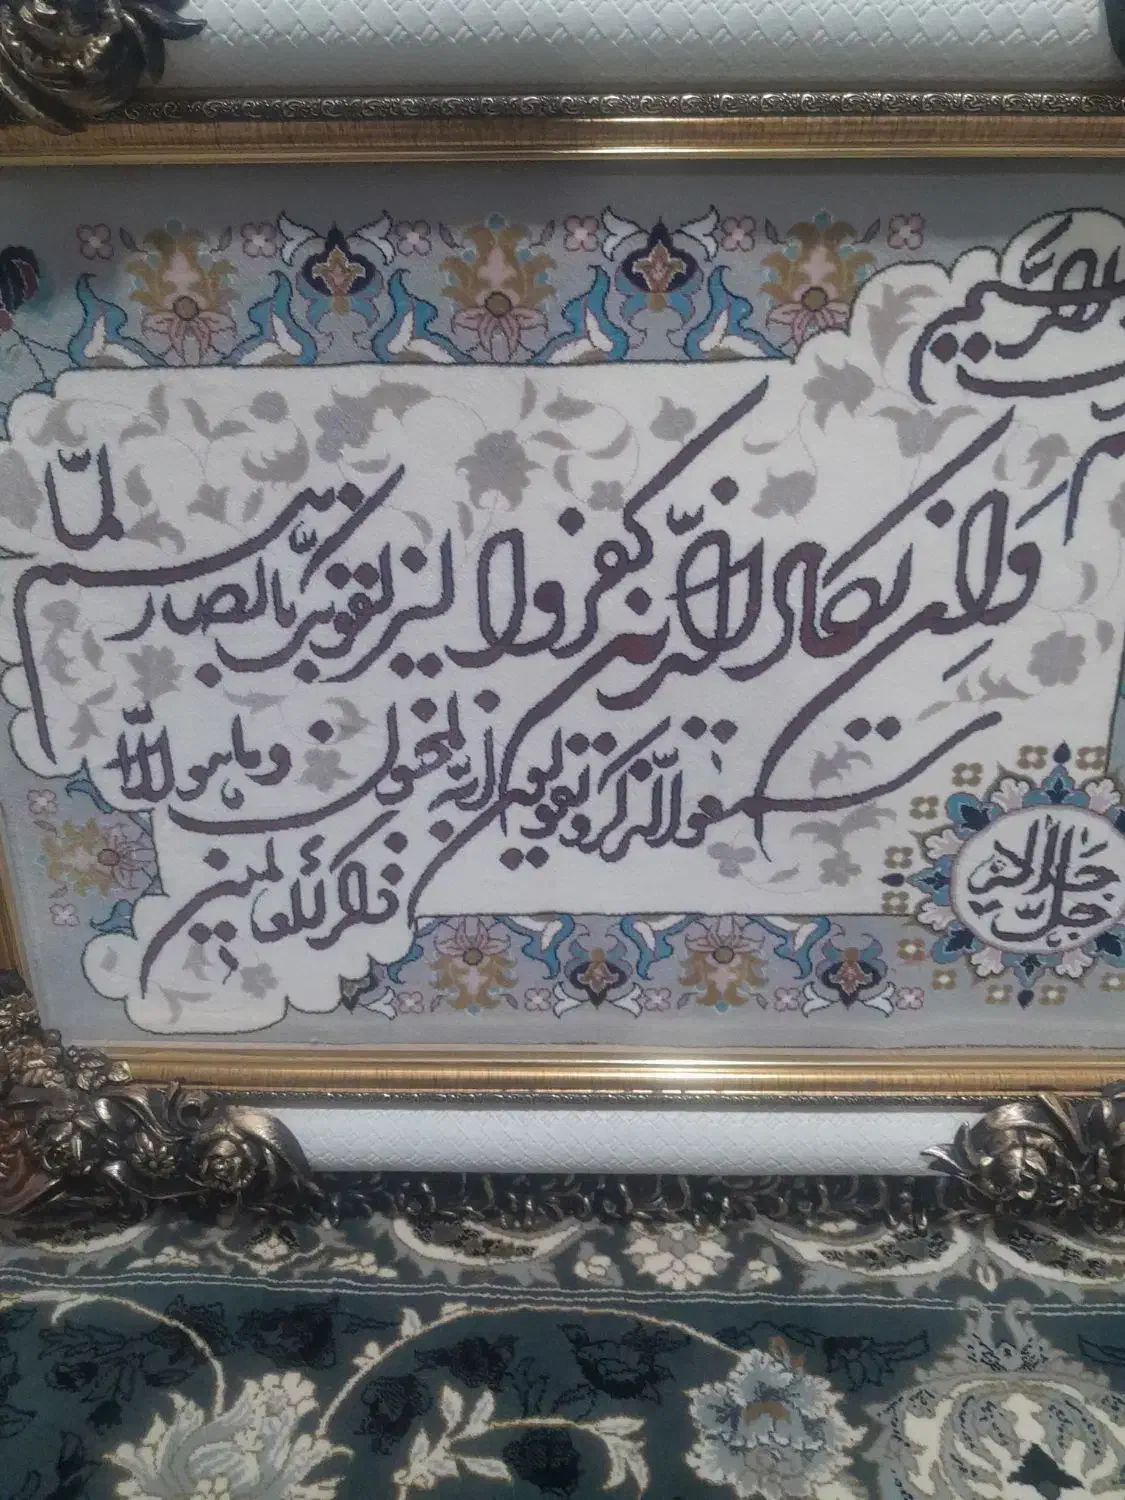 الرحیم
وان یکاد الذین کفروا لیزلقونک بابصارهم لما
سمعوا الذکر و یقولون انه لمجنون وما هو الا
ذکر للعالمین
جل جلاله